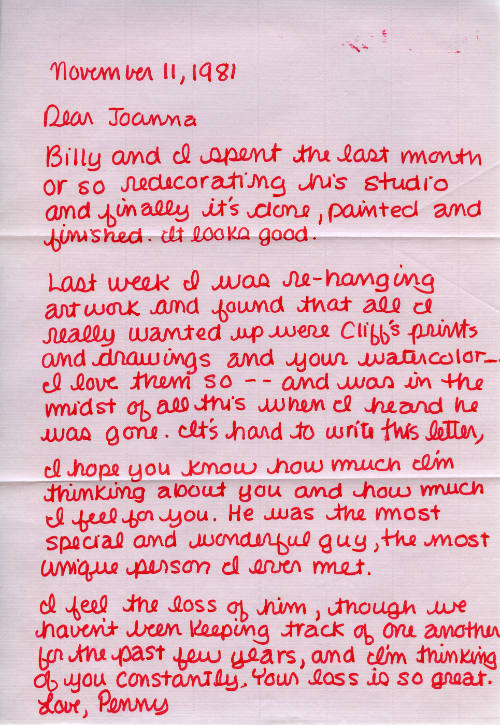 November 11, 1981
Dear Joanna
Billy and I spent the last month
or so redecorating his studio
and finally it's done, painted and
finished. It looks good.
Last week I was re-hanging
artwork and found that all I
really wanted up were Cliff's prints
and drawings and your watercolor—
I love them so -- and was in the
midst of all this when I heard he
was gone. It's hard to write this letter,
I hope you know how much I'm
thinking about you and how much
I feel for you. He was the most
special and wonderful guy, the most
unique person I ever met.
I feel the loss of him, though we
haven't been keeping track of one another
for the past few years, and I'm thinking
of you constantly. Your loss is so great.
Love, Penny